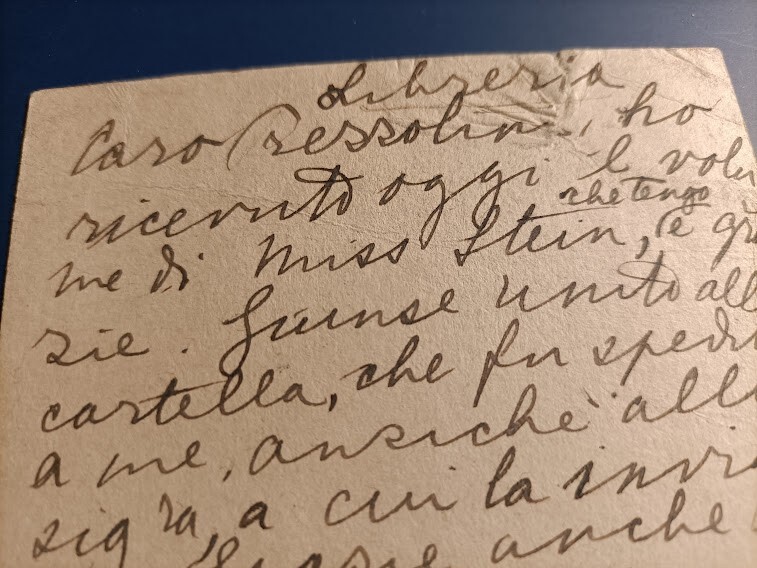 Libreria
Caro Prezzolini, ho
ricevuto oggi il volu
che tengo
me di Miss Stein, e gra
zie. Giunse unito all
cartella, che fu spedi
a me, anziché alla
sig.ra, a cui la invi
anche